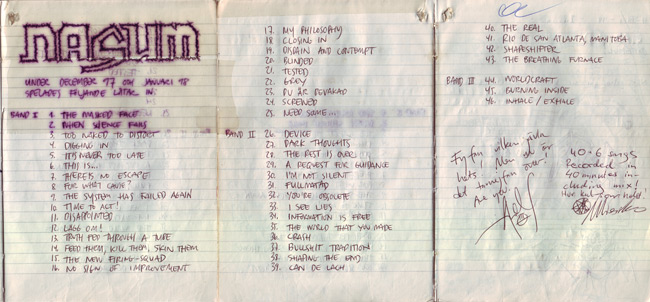 NASUM
UNDER DECEMBER 97 OCH JANUARI 98
SPELADES FÖLJANDE LÅTAR IN:
BAND I 1. THE MASKED FACE
2. WHEN SCIENCE FAILS
3. TOO NAKED TO DISTORT
4. DIGGING IN
5. IT'S NEVER TOO LATE
6. THIS IS...
7. THERE'S NO ESCAPE
8. FOR WHAT CAUSE?
9. THE SYSTEM HAS FAILED AGAIN
10. TIME TO ACT!
11. DISAPPOINTED
12. LAGG OM!
13. TRUTH FED THROUGH A TUBE
14. FEED THEM, KILL THEM, SKIN THEM
15. THE NEW FIRING-SQUAD
16. NO SIGN OF IMPROVEMENT
17. MY PHILOSOPHY
18. CLOSING IN
19. DISDAIN AND CONTEMPT
20. BLINDED
21. TESTED
22. GREY
23. DU ÄR BEVAKAD
24. SCREWED
25. NEED SOME...
BAND II 26. DEVICE
27. DARK THOUGHTS
28. THE REST IS OVER
29. A REQUEST FOR GUIDANCE
30. I'M NOT SILENT
31. FULLMATAD
32. YOU'RE OBSOLETE
33. I SEE LIES
34. INFORMATION IS FREE
35. THE WORLD THAT YOU MADE
36. CRASH
37. BULLSHIT TRADITION
38. SHAPING THE END
39. CAN DE LACH
40. THE REAL
41. RIO DE SAN ATLANTA, MANITOBA
42. SHAPESHIFTER
43. THE BREATHING FURNACE
BAND III 44. WORLDCRAFT
45. BURNING INSIDE
46. INHALE / EXHALE
Fy fan vilken jävla
hets! Men så är
det över!
Are you?
40+6 songs
Recorded in
40 minutes in-
cluding mix!